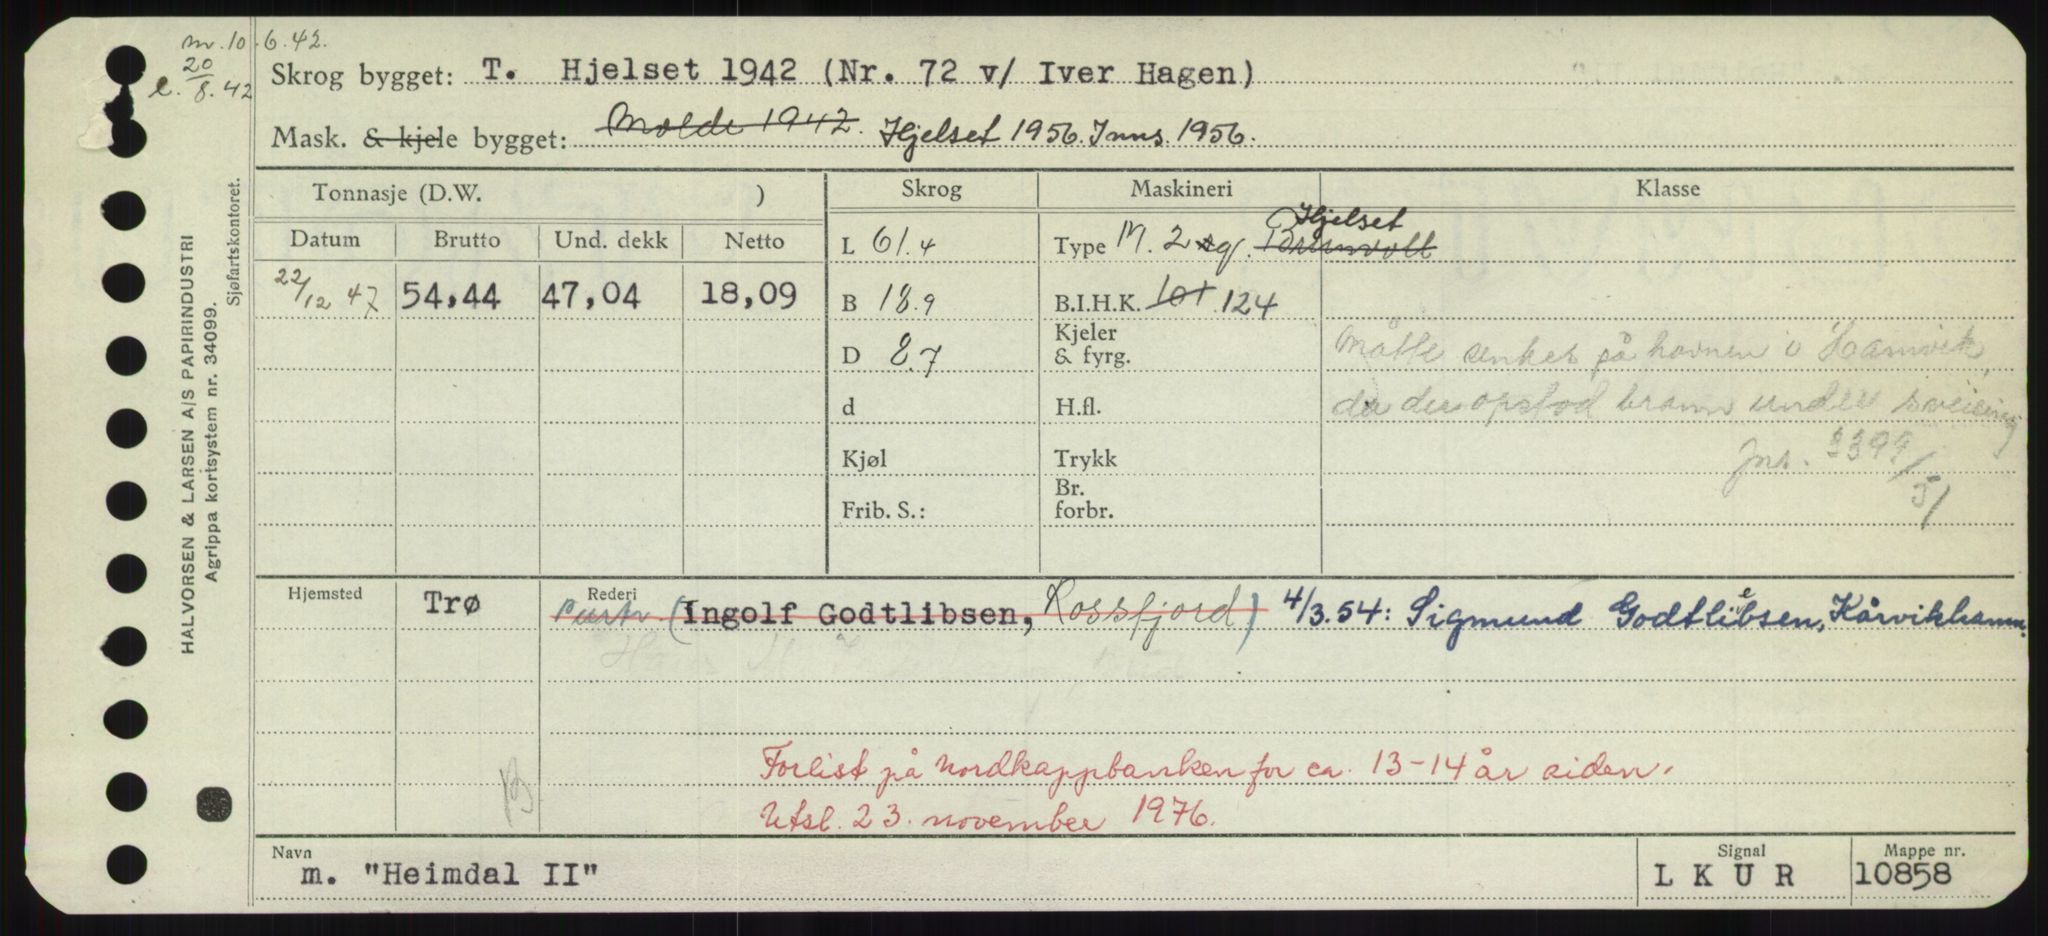 m. 10.6.42.
20
8.42
Skrog bygget: T. Hjelset 1942 (Nr. 72 v/ Iver Hagen)
Mask. & kjele bygget: Molde 1942. Hjelset 1956. Inns. 1956.
Tonnasje (D.W. )
Skrog
Maskineri
Klasse
Datum
Brutto
Und. dekk
Netto
22/12 47
54,44
47,04
18,09
L 61.4
B 18.9
D 8.7
d
Kjøl
Frib. S.:
Hjelset
Type M. 2 sy. Brunvoll
B.I.H.K. 101 124
Kjeler
& fyrg.
H.fl.
Trykk
Br.
forbr.
Måtte senkes på havnen i Hamvik,
da der opstod brann under sveising
Jnr. 3399/51
Hjemsted
Trø
Rederi
Partr. (Ingolf Godtlibsen, Rossfjord) 4/3.54: Sigmund Godtlibsen, Kårvikhamn.
Forlist på Nordkappbanken for ca. 13-14 år siden.
Utsl. 23. november 1976.
Navn
m. "Heimdal II"
Signal
L K U R
Mappe nr.
10858
HALVORSEN & LARSEN A/S PAPIRINDUSTRI
Agrippa kortsystem nr. 34099.
Sjøfartskontoret.